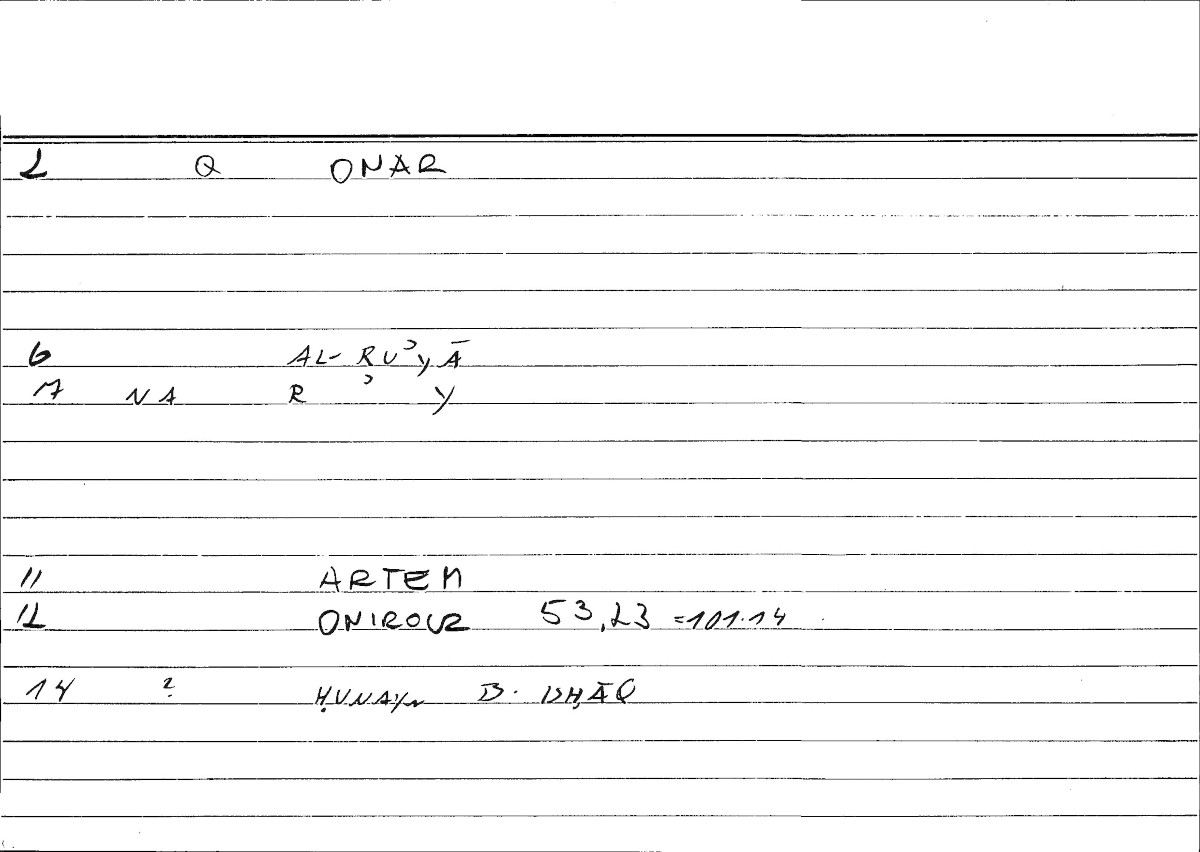 2 Q ONAR
6 AL-RUʾYĀ
17 NA R ʾ Y
11 ARTEM
12 ONIROCR 53,23 =101.14
14 ? ḤUNAYN B. ISḤĀQ